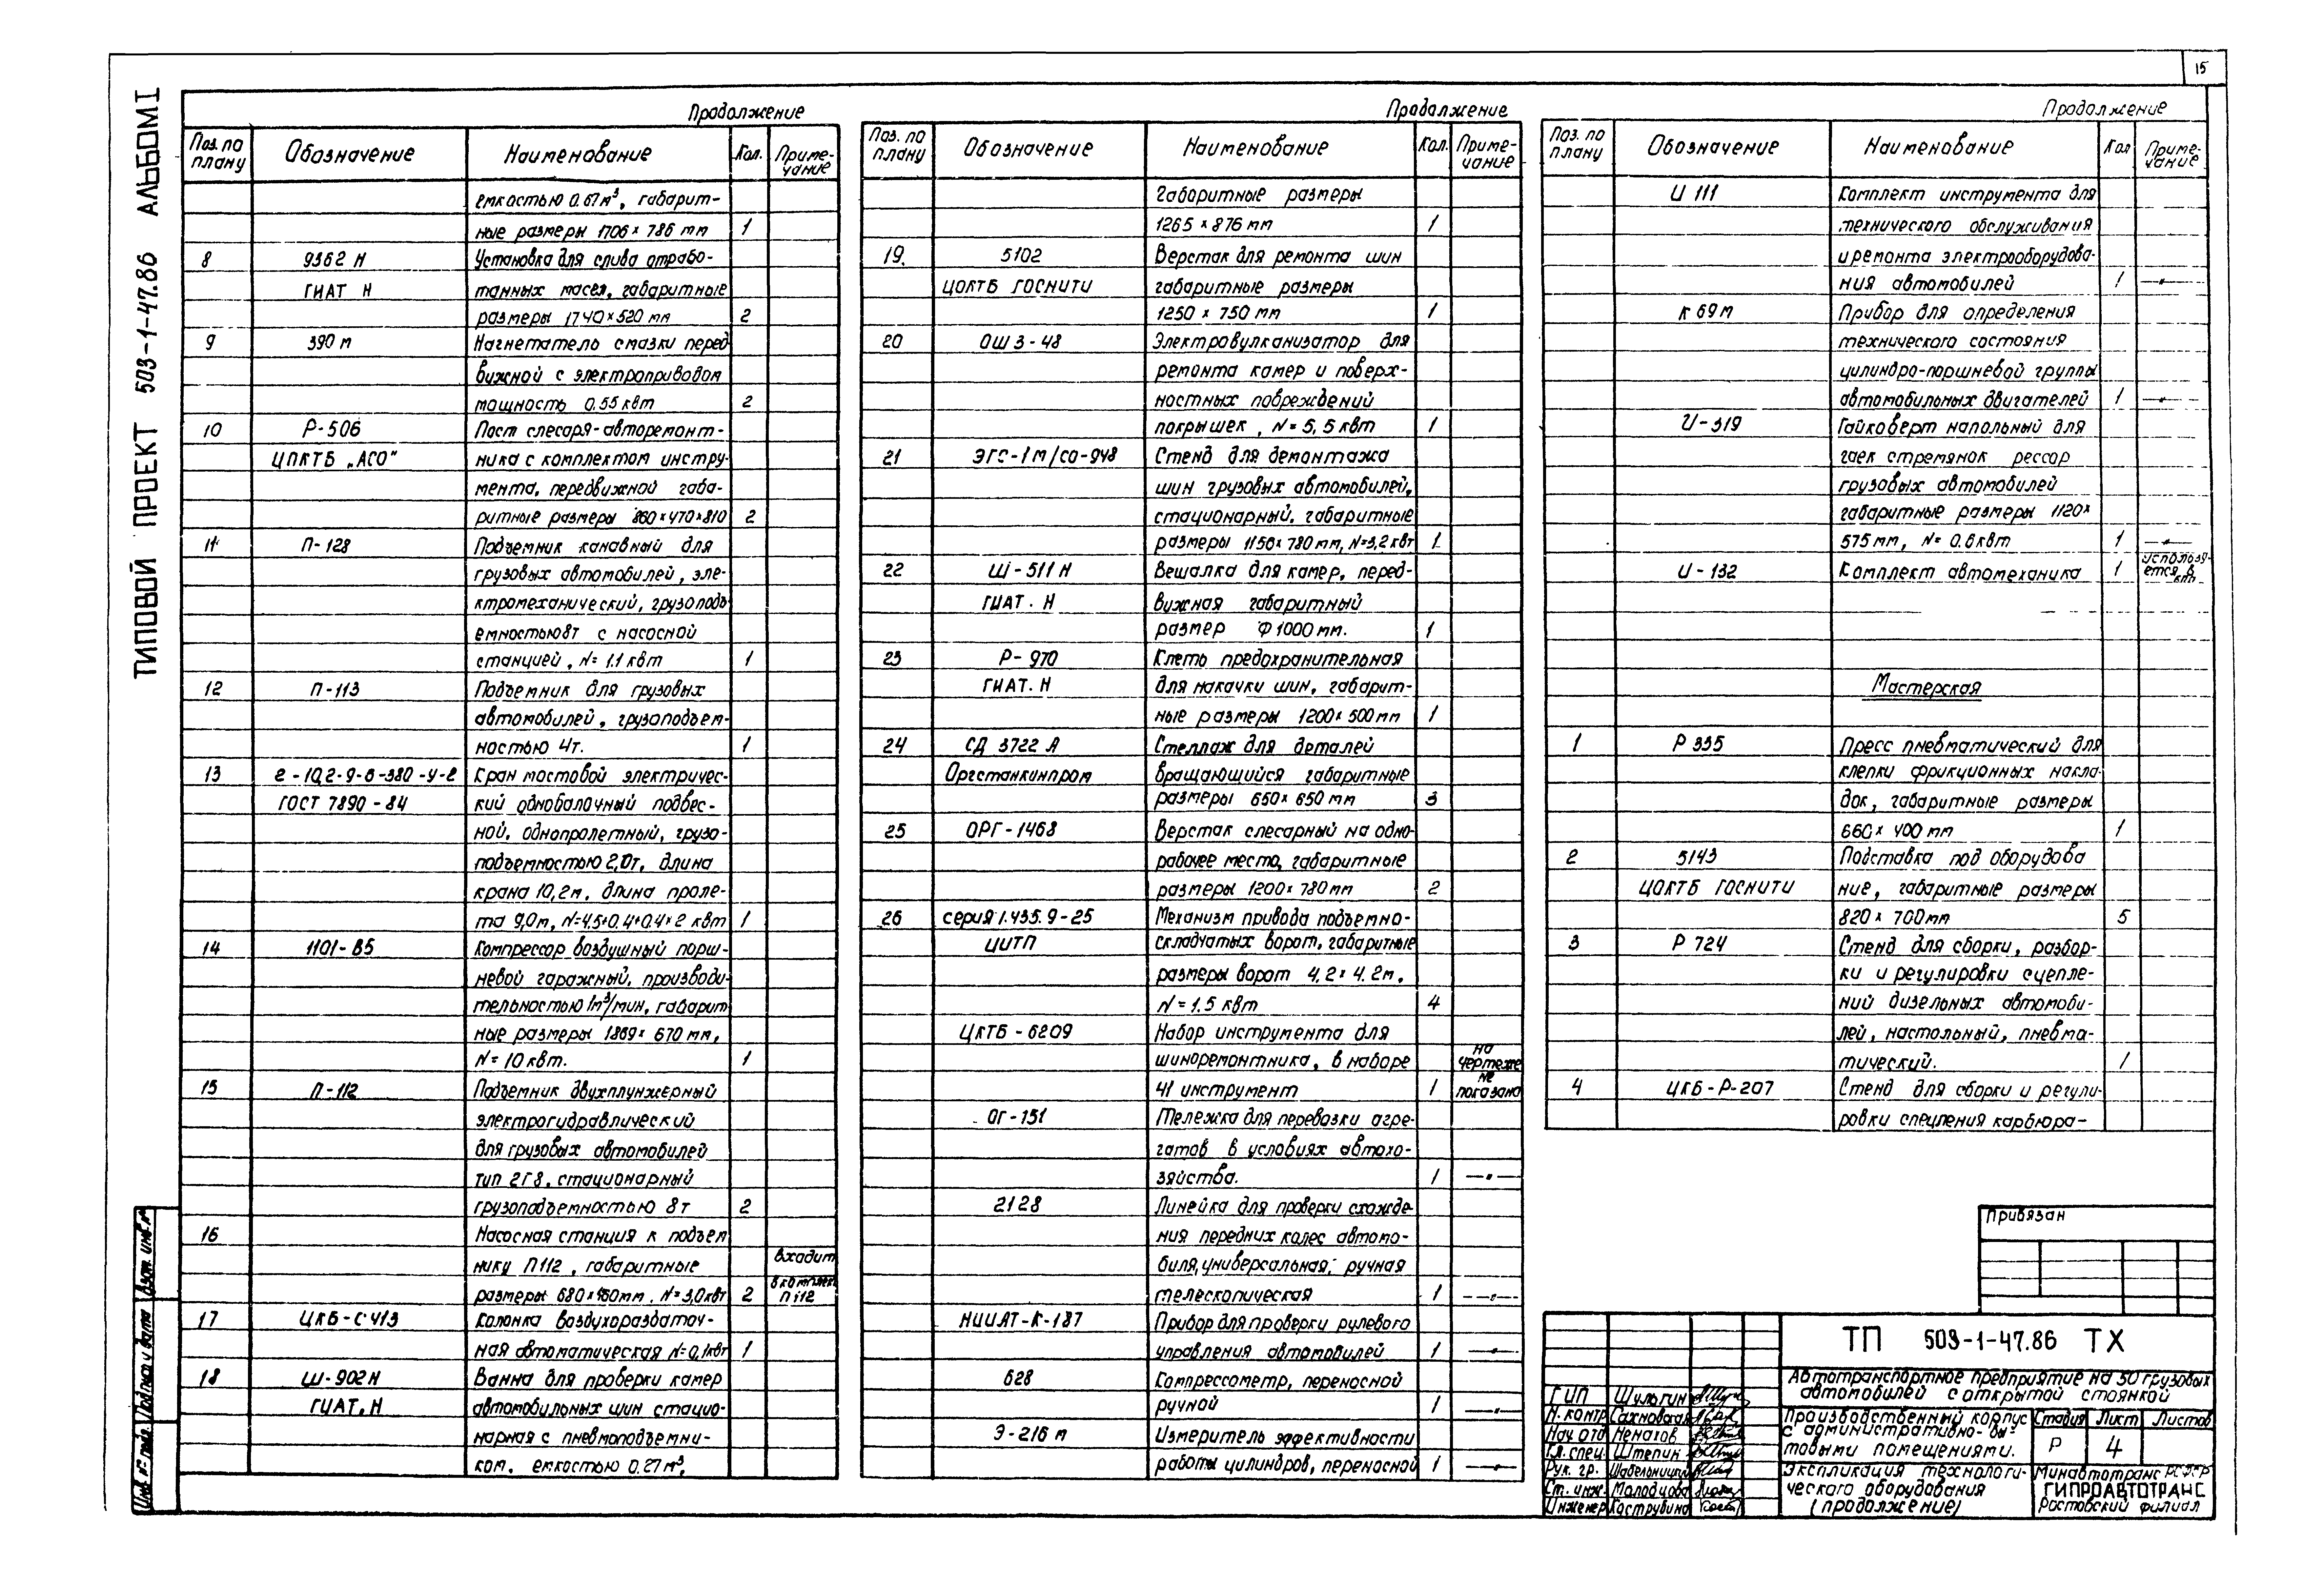 15
ТИПОВОЙ ПРОЕКТ 503-1-47.86 АЛЬБОМ I
Продолжение
Поз. по плану Обозначение Наименование Кол. Примечание
емкостью 0.67м³, габарит-
ные размеры 1706 × 786 мм 1
8 9362 Н Установка для слива отрабо-
ГИАТ Н танных масел, габаритные
размеры 1740×520 мм 2
9 390 М Нагнетатель смазки перед
вижной с электроприводом
мощность 0.55 квт 2
10 Р-506 Пост слесаря-авторемонт-
ЦПКТБ „АСО" ника с комплектом инстру-
мента, передвижной габа-
ритные размеры 860×470×810 2
11 П-128 Подъемник канавный для
грузовых автомобилей, эле-
ктромеханический, грузоподъ
емностью 8т с насосной
станцией, N= 1.1 квт 1
12 П-113 Подъемник для грузовых
автомобилей, грузоподъем-
ностью 4т. 1
13 2-10,2-9-6-380-У-2 Кран мостовой электричес-
ГОСТ 7890-84 кий однобалочный подвес-
ной, однопролетный, грузо-
подъемностью 2,0т, длина
крана 10,2м, длина проле-
та 9,0м, N=4,5+0.4+0.4×2 квт 1
14 1101-В5 Компрессор воздушный порш-
невой гаражный, производи-
тельностью 1м³/мин, габарит
ные размеры 1869× 670 мм,
N= 10 квт. 1
15 П-112 Подъемник двухплунжерный
электрогидравлический
для грузовых автомобилей
тип 2Г8, стационарный
грузоподъемностью 8 т 2
16 Насосная станция к подъем
нику П112, габаритные входит
размеры 680×460мм. N=3,0квт 2 в комплект П112
17 ЦКБ-С413 Колонка воздухораздаточ-
ная автоматическая N=0,1квт 1
18 Ш-902Н Ванна для проверки камер
ГИАТ.Н автомобильных шин стацио-
нарная с пневмоподъемни-
ком, емкостью 0.27м³,
Продолжение
Поз. по плану Обозначение Наименование Кол. Примечание
габаритные размеры
1265 × 876 мм 1
19. 5102 Верстак для ремонта шин
ЦОКТБ ГОСНИТИ габаритные размеры
1250 × 750 мм 1
20 ОШ3-48 Электровулканизатор для
ремонта камер и поверх-
ностных повреждений
покрышек, N= 5,5 квт 1
21 ЭГС-1М/СО-948 Стенд для демонтажа
шин грузовых автомобилей,
стационарный, габаритные
размеры 1150×780 мм, N=3,2 квт 1
22 Ш-511 Н Вешалка для камер, перед-
ГИАТ. Н вижная габаритный
размер Ф 1000 мм. 1
23 Р-970 Клеть предохранительная
ГИАТ. Н для накачки шин, габарит-
ные размеры 1200×500 мм 1
24 СД 3722 А Стеллаж для деталей
Оргстанкинпром вращающийся габаритные
размеры 650×650 мм 3
25 ОРГ-1468 Верстак слесарный на одно-
рабочее место, габаритные
размеры 1200×780 мм 2
26 серия 1.435.9-25 Механизм привода подъемно-
ЦИТП складчатых ворот, габаритные
размеры ворот 4,2×4.2м,
N=1.5 квт 4
ЦКТБ-6209 Набор инструмента для
шиноремонтника, в наборе на чертеже
41 инструмент 1 не показано
ОГ-151 Тележка для перевозки агре-
гатов в условиях автохо-
зяйства. 1 —"—
2128 Линейка для проверки схожде-
ния передних колес автомо-
биля, универсальная, ручная
телескопическая 1 —"—
НИИАТ-К-187 Прибор для проверки рулевого
управления автомобилей 1 —"—
628 Компрессометр, переносной
ручной 1 —"—
Э-216 М Измеритель эффективности
работы цилиндров, переносной 1 —"—
Продолжение
Поз. по плану Обозначение Наименование Кол Примечание
И 111 Комплект инструмента для
технического обслуживания
и ремонта электрооборудова-
ния автомобилей 1 —"—
К 69М Прибор для определения
технического состояния
цилиндро-поршневой группы
автомобильных двигателей 1 —"—
И-319 Гайковерт напольный для
гаек стремянок рессор
грузовых автомобилей
габаритные размеры 1120×
575 мм, N= 0.6 квт 1 —"—
И-132 Комплект автомеханика 1 используется в
Мастерская
1 Р 335 Пресс пневматический для
клепки фрикционных накла-
док, габаритные размеры
660× 400 мм 1
2 5143 Подставка под оборудова
ЦОКТБ ГОСНИТИ ние, габаритные размеры
820 × 700мм 5
3 Р 724 Стенд для сборки, разбор-
ки и регулировки сцепле-
ний дизельных автомоби-
лей, настольный, пневма-
тический. 1
4 ЦКБ-Р-207 Стенд для сборки и регули-
ровки спецления карбюра-
Привязан
ТП 503-1-47.86 ТХ
Автотранспортное предприятие на 50 грузовых
автомобилей с открытой стоянкой
ГИП Шульгин
Н. контр Сахновская
Нач отд Ненахов
Гл. спец. Штепин
Рук. гр. Шабельницкий
Ст. инж. Молодцова
Инженер Кострубина
Производственный корпус
с административно-бы-
товыми помещениями.
Стадия Лист Листов
Р 4
Экспликация технологи-
ческого оборудования
(продолжение)
Минавтотранс РСФСР
ГИПРОАВТОТРАНС
Ростовский филиал
Инв. № подл. Подпись и дата Взам. инв. №